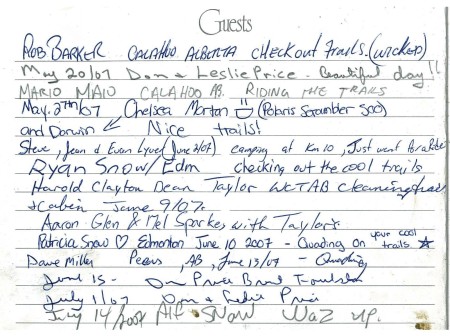 Guests
ROB BARKER CALAHOO ALBERTA checkout trails. (WICKED)
May 20/07 Don & Leslie Price - Beautiful day!!
MARIO MAIO CALAHOO AB. RIDING THE TRAILS
May. 27th/07 Chelsea Morton (Polaris Scrambler 500)
and Darwin Nice trails!
Steve, Jean & Evan (June 2/07) camping at Km 10, Just went for a Ride
Ryan Snow/Edm checking out the cool trails
Harold Clayton Dean Taylor WCTAB cleaning trails
& Cabin June 9/07.
Aaron Glen & Mel Sparkes with Taylor's
Patricia Snow ♡ Edmonton June 10 2007 - Quading on your cool trails ☆
Dave Miller Peers, AB, June 13/07 - Quading
June 15 - Don Price
July 1/07 Don & Leslie Price
July 14/2007 Alf Snow Waz up.